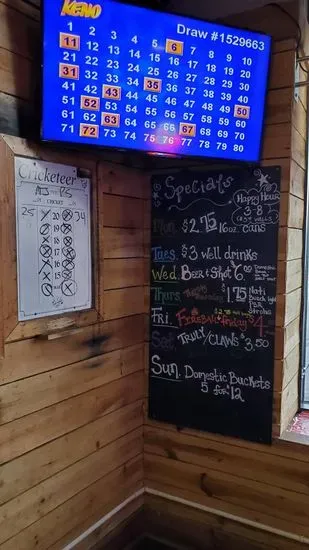 KENO
Draw #1529663
1 2 3 4 5 6 7 8 9 10
11 12 13 14 15 16 17 18 19 20
21 22 23 24 25 26 27 28 29 30
31 32 33 34 35 36 37 38 39 40
41 42 43 44 45 46 47 48 49 50
51 52 53 54 55 56 57 58 59 60
61 62 63 64 65 66 67 68 69 70
71 72 73 74 75 76 77 78 79 80
Cricketeer
CRICKET
25 20 34
19
18
17
16
15
Specials
Happy Hour
3-8
Mon. $2.75 16oz. cans
Tues. $3 well drinks
Wed. Beer & Shot $6.00
Thurs. Thirsty Thursday $1.75 Nati
Busch light
PBR
Strohs
Fri. Fireball Friday $4
Sat. TRULY/CLAWS $3.50
Sun. Domestic Buckets
5 for $12